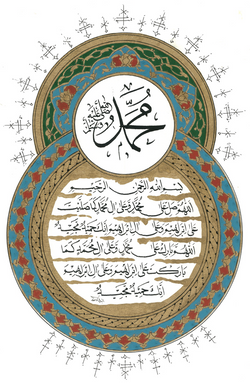 محمد
صلى الله عليه وسلم
بسم الله الرحمن الرحيم
اللهم صل على محمد وعلى آل محمد كما صليت
على ابراهيم وعلى آل ابراهيم انك حميد مجيد
اللهم بارك على محمد وعلى آل محمد كما
باركت على ابراهيم وعلى آل ابراهيم
انك حميد مجيد